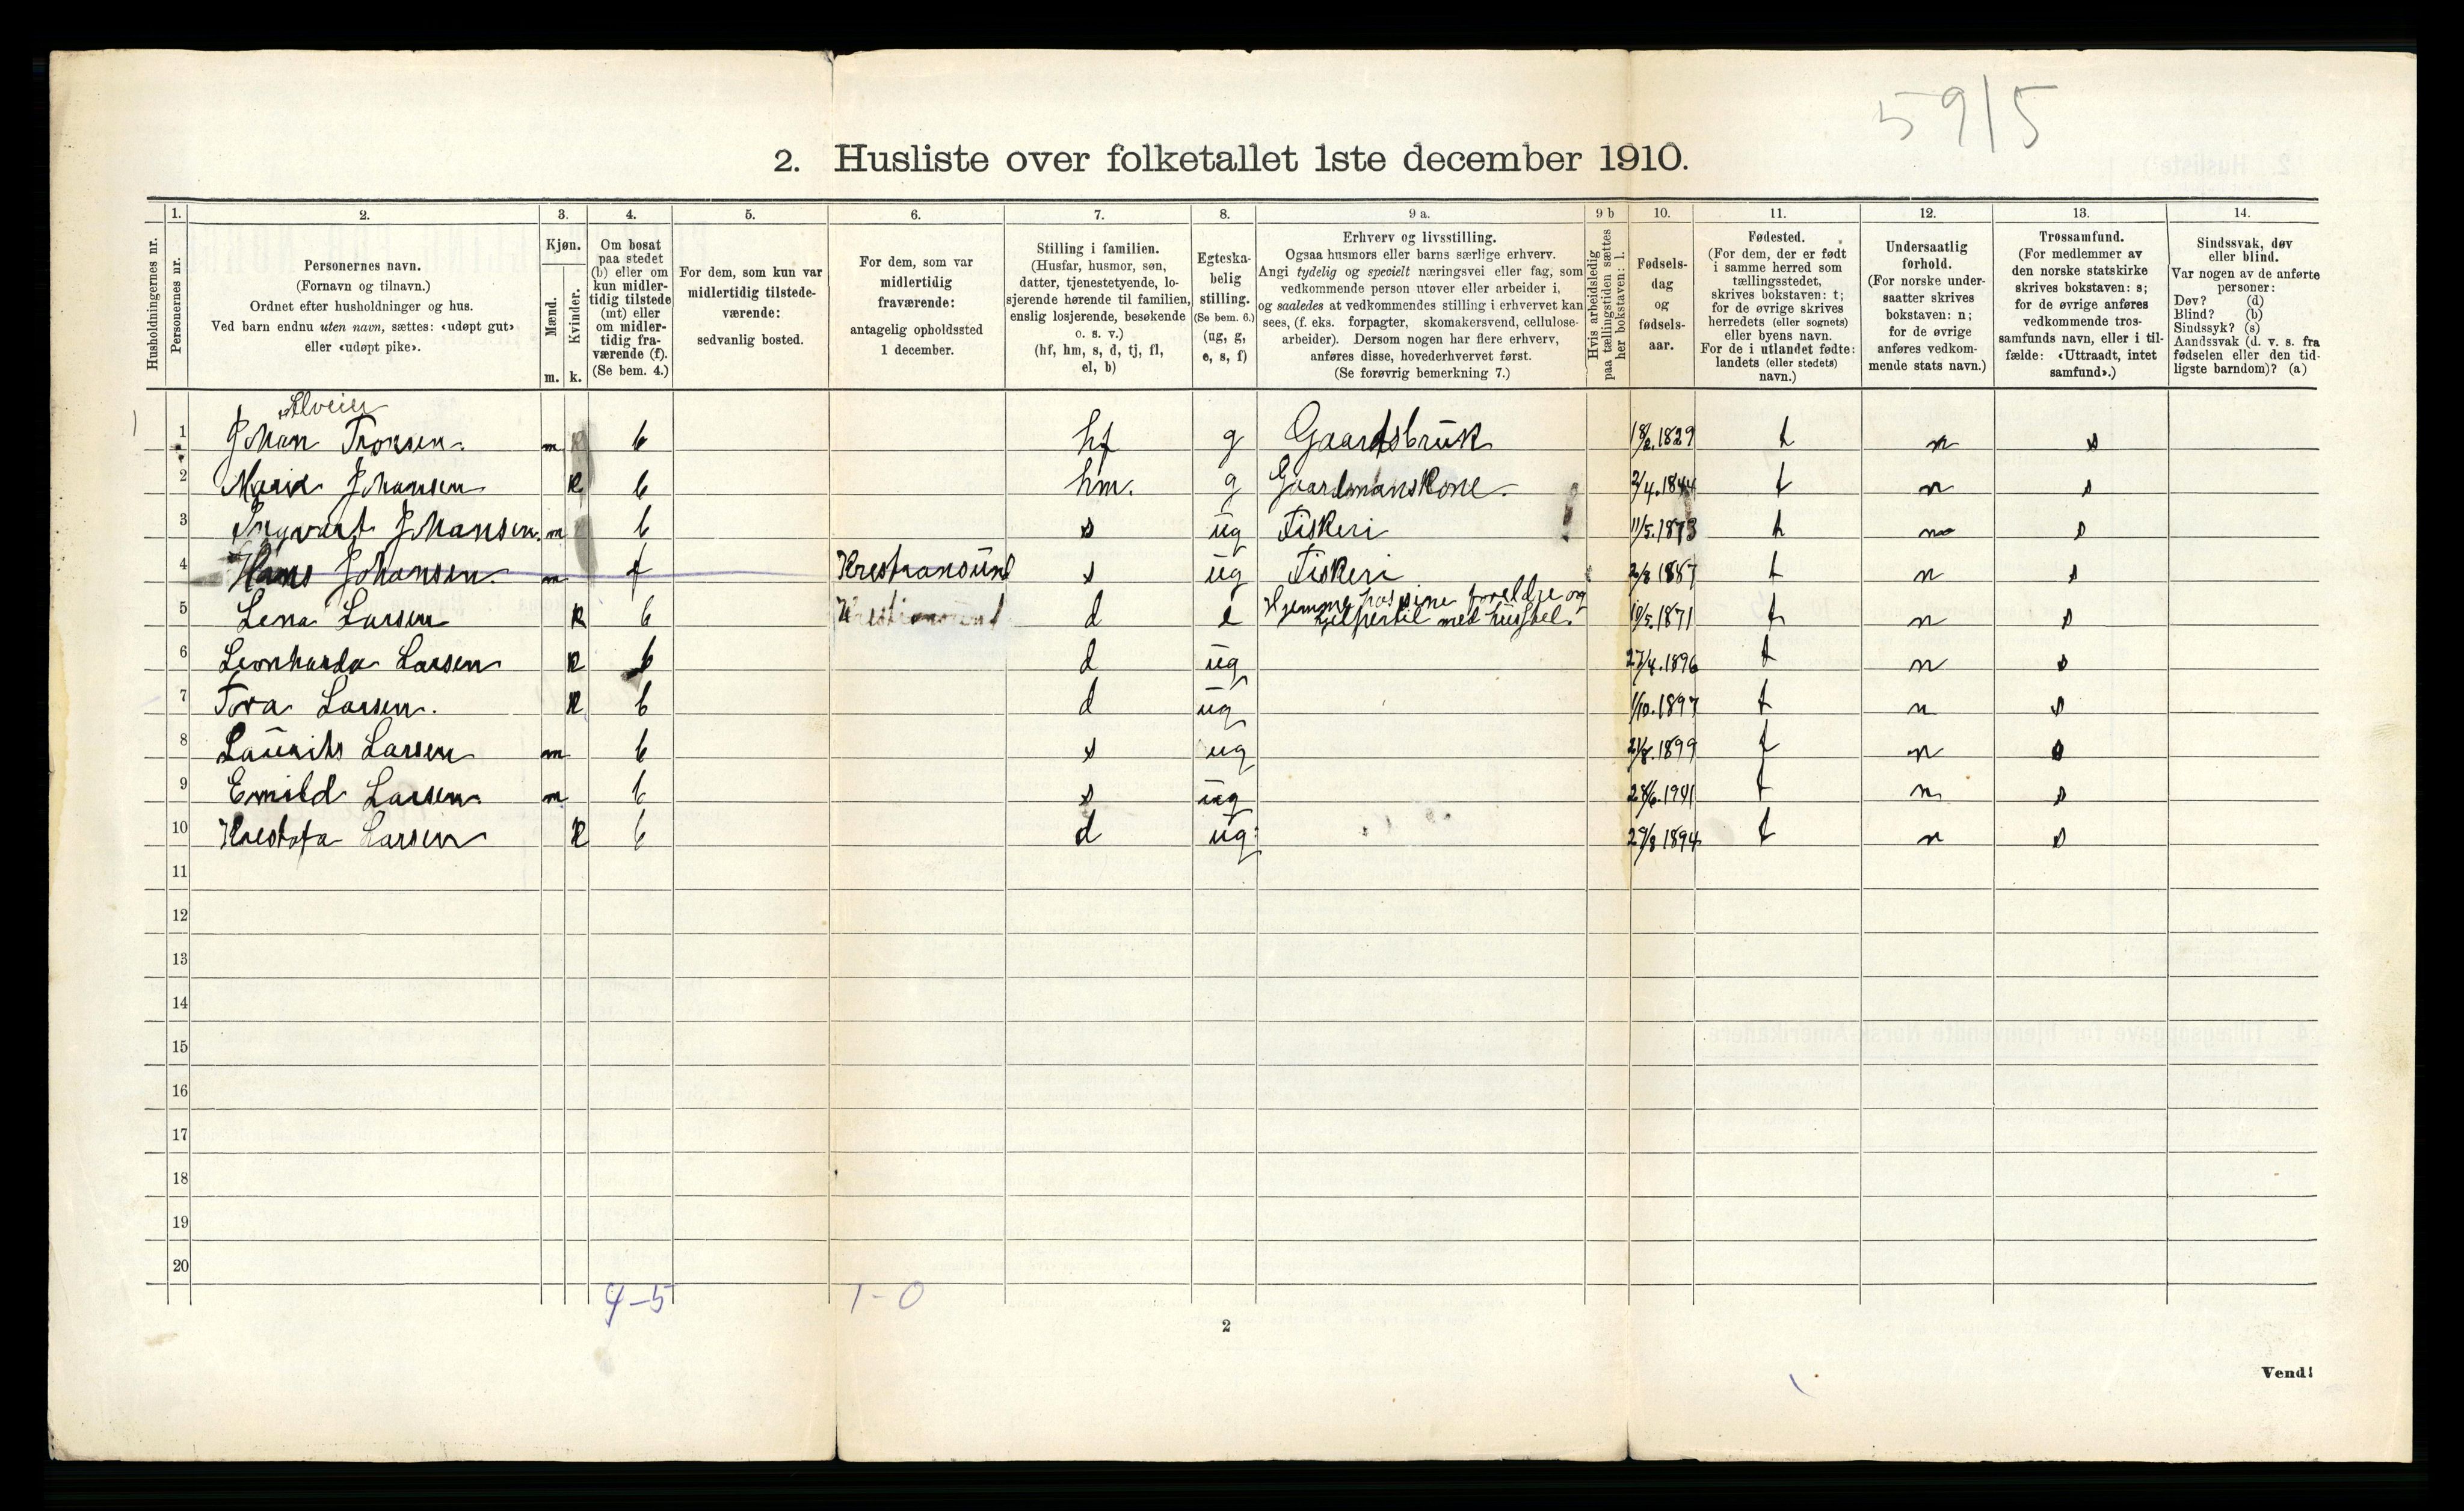 5915
2. Husliste over folketallet 1ste december 1910.
Husholdningernes nr.
1. Personernes nr.
2. Personernes navn.
(Fornavn og tilnavn.)
Ordnet efter husholdninger og hus.
Ved barn endnu uten navn, sættes: «udøpt gut»
eller «udøpt pike».
3. Kjøn.
Mænd. m.
Kvinder. k.
4. Om bosat
paa stedet
(b) eller om
kun midler-
tidig tilstede
(mt) eller
om midler-
tidig fra-
værende (f).
(Se bem. 4.)
5. For dem, som kun var
midlertidig tilstede-
værende:
sedvanlig bosted.
6. For dem, som var
midlertidig
fraværende:
antagelig opholdssted
1 december.
7. Stilling i familien.
(Husfar, husmor, søn,
datter, tjenestetyende, lo-
sjerende hørende til familien,
enslig losjerende, besøkende
o. s. v.)
(hf, hm, s, d, tj, fl,
el, b)
8. Egteska-
belig
stilling.
(Se bem. 6.)
(ug, g,
e, s, f)
9 a. Erhverv og livsstilling.
Ogsaa husmors eller barns særlige erhverv.
Angi tydelig og specielt næringsvei eller fag, som
vedkommende person utøver eller arbeider i,
og saaledes at vedkommendes stilling i erhvervet kan
sees, (f. eks. forpagter, skomakersvend, cellulose-
arbeider). Dersom nogen har flere erhverv,
anføres disse, hovederhvervet først.
(Se forøvrig bemerkning 7.)
9 b Hvis arbeidsledig
paa tællingstiden sættes
her bokstaven: l.
10. Fødsels-
dag
og
fødsels-
aar.
11. Fødested.
(For dem, der er født
i samme herred som
tællingsstedet,
skrives bokstaven: t;
for de øvrige skrives
herredets (eller sognets)
eller byens navn.
For de i utlandet fødte:
landets (eller stedets)
navn.)
12. Undersaatlig
forhold.
(For norske under-
saatter skrives
bokstaven: n;
for de øvrige
anføres vedkom-
mende stats navn.)
13. Trossamfund.
(For medlemmer av
den norske statskirke
skrives bokstaven: s;
for de øvrige anføres
vedkommende tros-
samfunds navn, eller i til-
fælde: «Uttraadt, intet
samfund».)
14. Sindssvak, døv
eller blind.
Var nogen av de anførte
personer:
Døv? (d)
Blind? (b)
Sindssyk? (s)
Aandssvak (d. v. s. fra
fødselen eller den tid-
ligste barndom)? (a)
1 1 Johan Tronsen. m b hf g Gaardsbruk 18/2.1829 t n s
2 Marie Johansen k b hm. g Gaardmanskone. 2/4.1844 t n s
3 Ingvart Johansen. m b s ug Fiskeri 11/5.1873 t n s
4 Hans Johansen. m f Krestiansund s ug Fiskeri 20/8 1887 t n s
5 Lena Larsen k b Krestiansund d e Hjemme hos sine foreldre og
hjelper til med husstel. 10/5.1871 t n s
6 Leonharda Larsen k b d ug 27/4.1896 t n s
7 Tora Larsen. k b d ug 1/10.1897 t n s
8 Laurits Larsen m b s ug 21/8.1899 t n s
9 Emild Larsen m b s ug 28/6.1901 t n s
10 Krestofa Larsen k b d ug 29/8 1894 t n s
11
12
13
14
15
16
17
18
19
20
4-5 1-0
2
Vend!